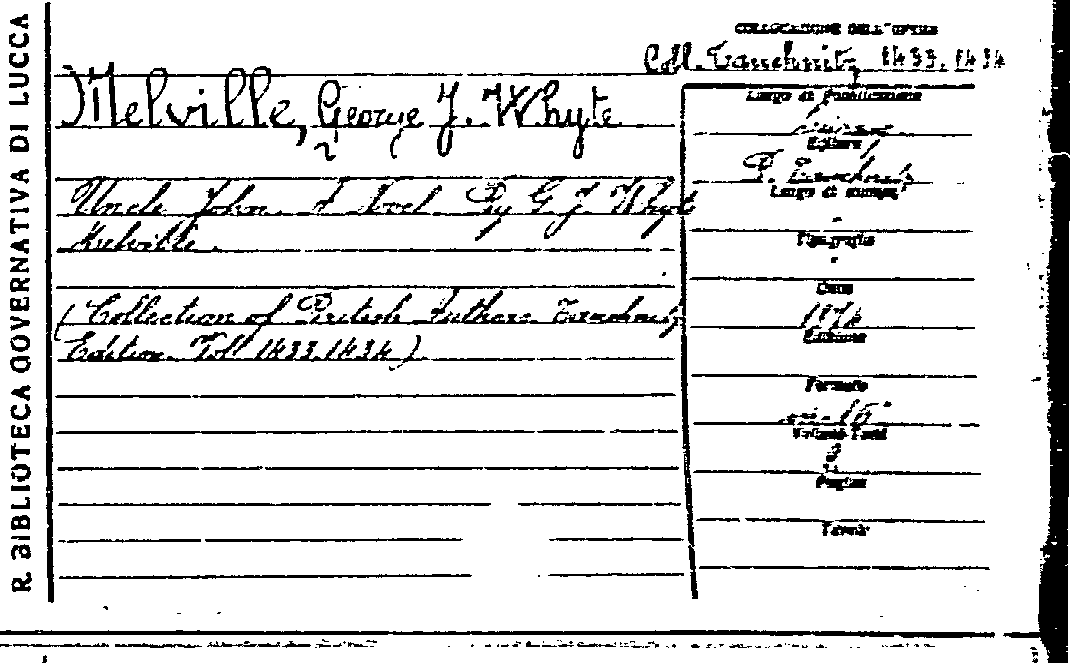 R. BIBLIOTECA GOVERNATIVA DI LUCCA
COLLOCAZIONE DELL'OPERA
Coll. Tauchnitz 1433.1434
Melville, George J. Whyte
Uncle John. A Novel. By G. J. Whyte
Melville.
(Collection of British Authors Tauchnitz
Edition. Voll 1433.1434)
Luogo di Pubblicazione
Editore
B. Tauchnitz
Luogo di stampa
Tipografia
Data
1874
Edizione
Formato
in-16°
Volumi-Tomi
2
Pagine
Tavole